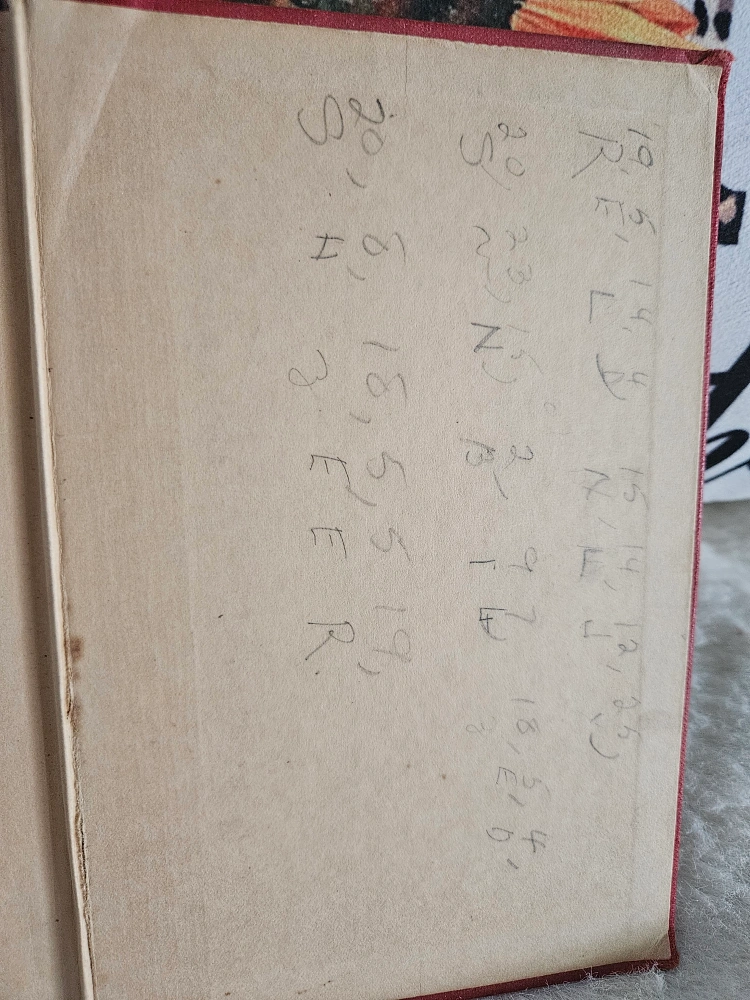 19, 5, 14, 4 15 14, 12, 25
R, E, L D N, E
20, 23, 15, 2 9 18, 5, 4,
S N B I E, D,
20, 8, 18, 5, 5 19,
S, H 3 E E R.